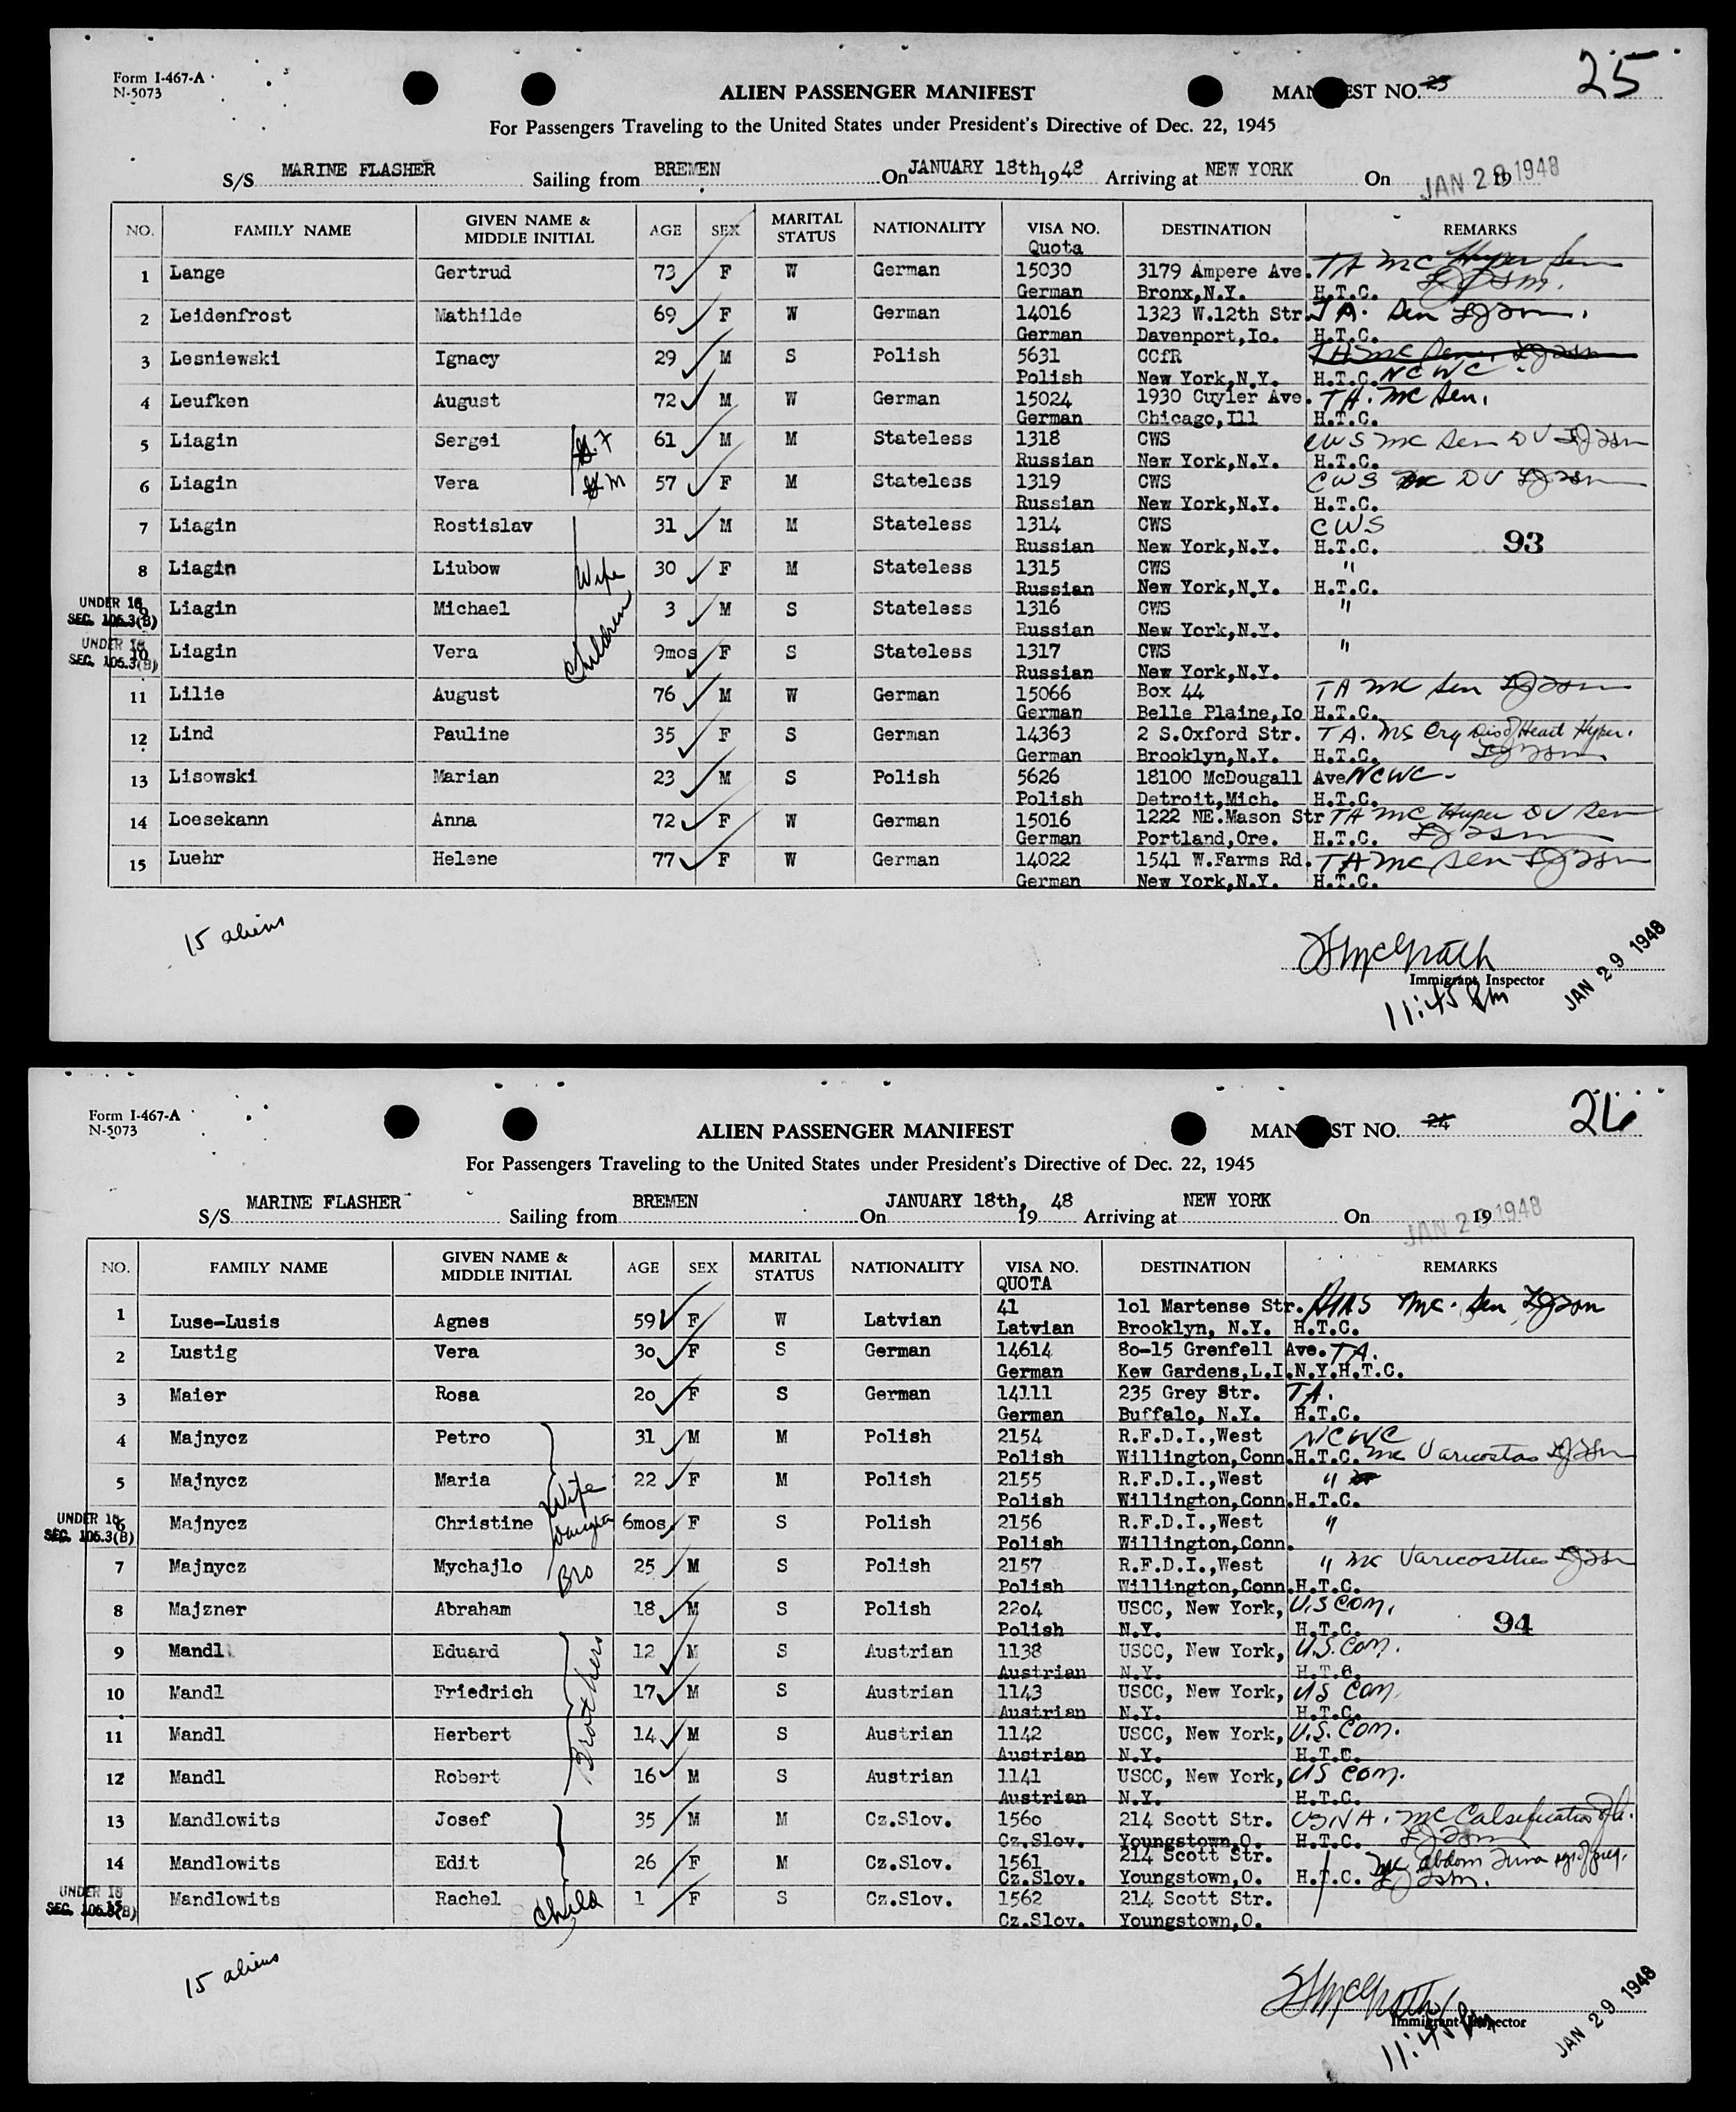 Form I-467-A
N-5073
ALIEN PASSENGER MANIFEST
MAN EST NO. 25
25
For Passengers Traveling to the United States under President's Directive of Dec. 22, 1945
S/S MARINE FLASHER Sailing from BREMEN On JANUARY 18th 19 48 Arriving at NEW YORK On JAN 29 1948 19
NO. FAMILY NAME GIVEN NAME & MIDDLE INITIAL AGE SEX MARITAL STATUS NATIONALITY VISA NO. Quota DESTINATION REMARKS
1 Lange Gertrud 73 F W German 15030 3179 Ampere Ave. TA mc Hyper Sen
German Bronx,N.Y. H.T.C.
2 Leidenfrost Mathilde 69 F W German 14016 1323 W.12th Str. TA. Sen
German Davenport,Io. H.T.C.
3 Lesniewski Ignacy 29 M S Polish 5631 CCfR
Polish New York,N.Y. H.T.C. NCWC
4 Leufken August 72 M W German 15024 1930 Cuyler Ave. TA. mc Sen.
German Chicago,Ill H.T.C.
5 Liagin Sergei G.F 61 M M Stateless 1318 CWS CWS mc Sen DV
Russian New York,N.Y. H.T.C.
6 Liagin Vera G.M 57 F M Stateless 1319 CWS CWS mc DV
Russian New York,N.Y. H.T.C.
7 Liagin Rostislav 31 M M Stateless 1314 CWS CWS
Russian New York,N.Y. H.T.C. 93
8 Liagin Liubow Wife 30 F M Stateless 1315 CWS "
Russian New York,N.Y. H.T.C.
UNDER 16 SEC. 105.3(B) 9 Liagin Michael Children 3 M S Stateless 1316 CWS "
Russian New York,N.Y.
UNDER 16 SEC. 105.3(B) 10 Liagin Vera 9mos F S Stateless 1317 CWS "
Russian New York,N.Y.
11 Lilie August 76 M W German 15066 Box 44 TA mc Sen
German Belle Plaine,Io H.T.C.
12 Lind Pauline 35 F S German 14363 2 S.Oxford Str. TA. Heart Hyper.
German Brooklyn,N.Y. H.T.C.
13 Lisowski Marian 23 M S Polish 5626 18100 McDougall Ave NCWC
Polish Detroit,Mich. H.T.C.
14 Loesekann Anna 72 F W German 15016 1222 NE.Mason Str TA mc Hyper DV Sen
German Portland,Ore. H.T.C.
15 Luehr Helene 77 F W German 14022 1541 W.Farms Rd. TA mc Sen
German New York,N.Y. H.T.C.
15 aliens
McGrath
Immigrant Inspector
11:45 Pm
JAN 29 1948
Form I-467-A
N-5073
ALIEN PASSENGER MANIFEST
MAN ST NO. 24
26
For Passengers Traveling to the United States under President's Directive of Dec. 22, 1945
S/S MARINE FLASHER Sailing from BREMEN On JANUARY 18th, 19 48 Arriving at NEW YORK On JAN 29 1948 19
NO. FAMILY NAME GIVEN NAME & MIDDLE INITIAL AGE SEX MARITAL STATUS NATIONALITY VISA NO. QUOTA DESTINATION REMARKS
1 Luse-Lusis Agnes 59 F W Latvian 41 lol Martense Str. mc. Sen
Latvian Brooklyn, N.Y. H.T.C.
2 Lustig Vera 3o F S German 14614 8o-15 Grenfell Ave. TA.
German Kew Gardens,L.I.N.Y.H.T.C.
3 Maier Rosa 2o F S German 14111 235 Grey Str. TA.
German Buffalo, N.Y. H.T.C.
4 Majnycz Petro 31 M M Polish 2154 R.F.D.I.,West NCWC
Polish Willington,Conn.H.T.C. mc
5 Majnycz Maria Wife 22 F M Polish 2155 R.F.D.I.,West "
Polish Willington,Conn.H.T.C.
UNDER 16 SEC. 105.3(B) 6 Majnycz Christine Daughter 6mos. F S Polish 2156 R.F.D.I.,West "
Polish Willington,Conn.
7 Majnycz Mychajlo Bro 25 M S Polish 2157 R.F.D.I.,West " mc
Polish Willington,Conn.H.T.C.
8 Majzner Abraham 18 M S Polish 22o4 USCC, New York, U.S Com.
Polish N.Y. H.T.C. 94
9 Mandl Eduard 12 M S Austrian 1138 USCC, New York, U.S. Com.
Austrian N.Y. H.T.C.
10 Mandl Friedrich Brothers 17 M S Austrian 1143 USCC, New York, US Com.
Austrian N.Y. H.T.C.
11 Mandl Herbert 14 M S Austrian 1142 USCC, New York, U.S. Com.
Austrian N.Y. H.T.C.
12 Mandl Robert 16 M S Austrian 1141 USCC, New York, US Com.
Austrian N.Y. H.T.C.
13 Mandlowits Josef 35 M M Cz.Slov. 156o 214 Scott Str. USNA. mc
Cz.Slov. Youngstown,O. H.T.C.
14 Mandlowits Edit 26 F M Cz.Slov. 1561 214 Scott Str. mc abdom
Cz.Slov. Youngstown,O. H.T.C.
UNDER 16 SEC. 105.3(B) 15 Mandlowits Rachel Child 1 F S Cz.Slov. 1562 214 Scott Str.
Cz.Slov. Youngstown,O.
15 aliens
McGrath
Immigrant Inspector
11:45 Pm
JAN 29 1948